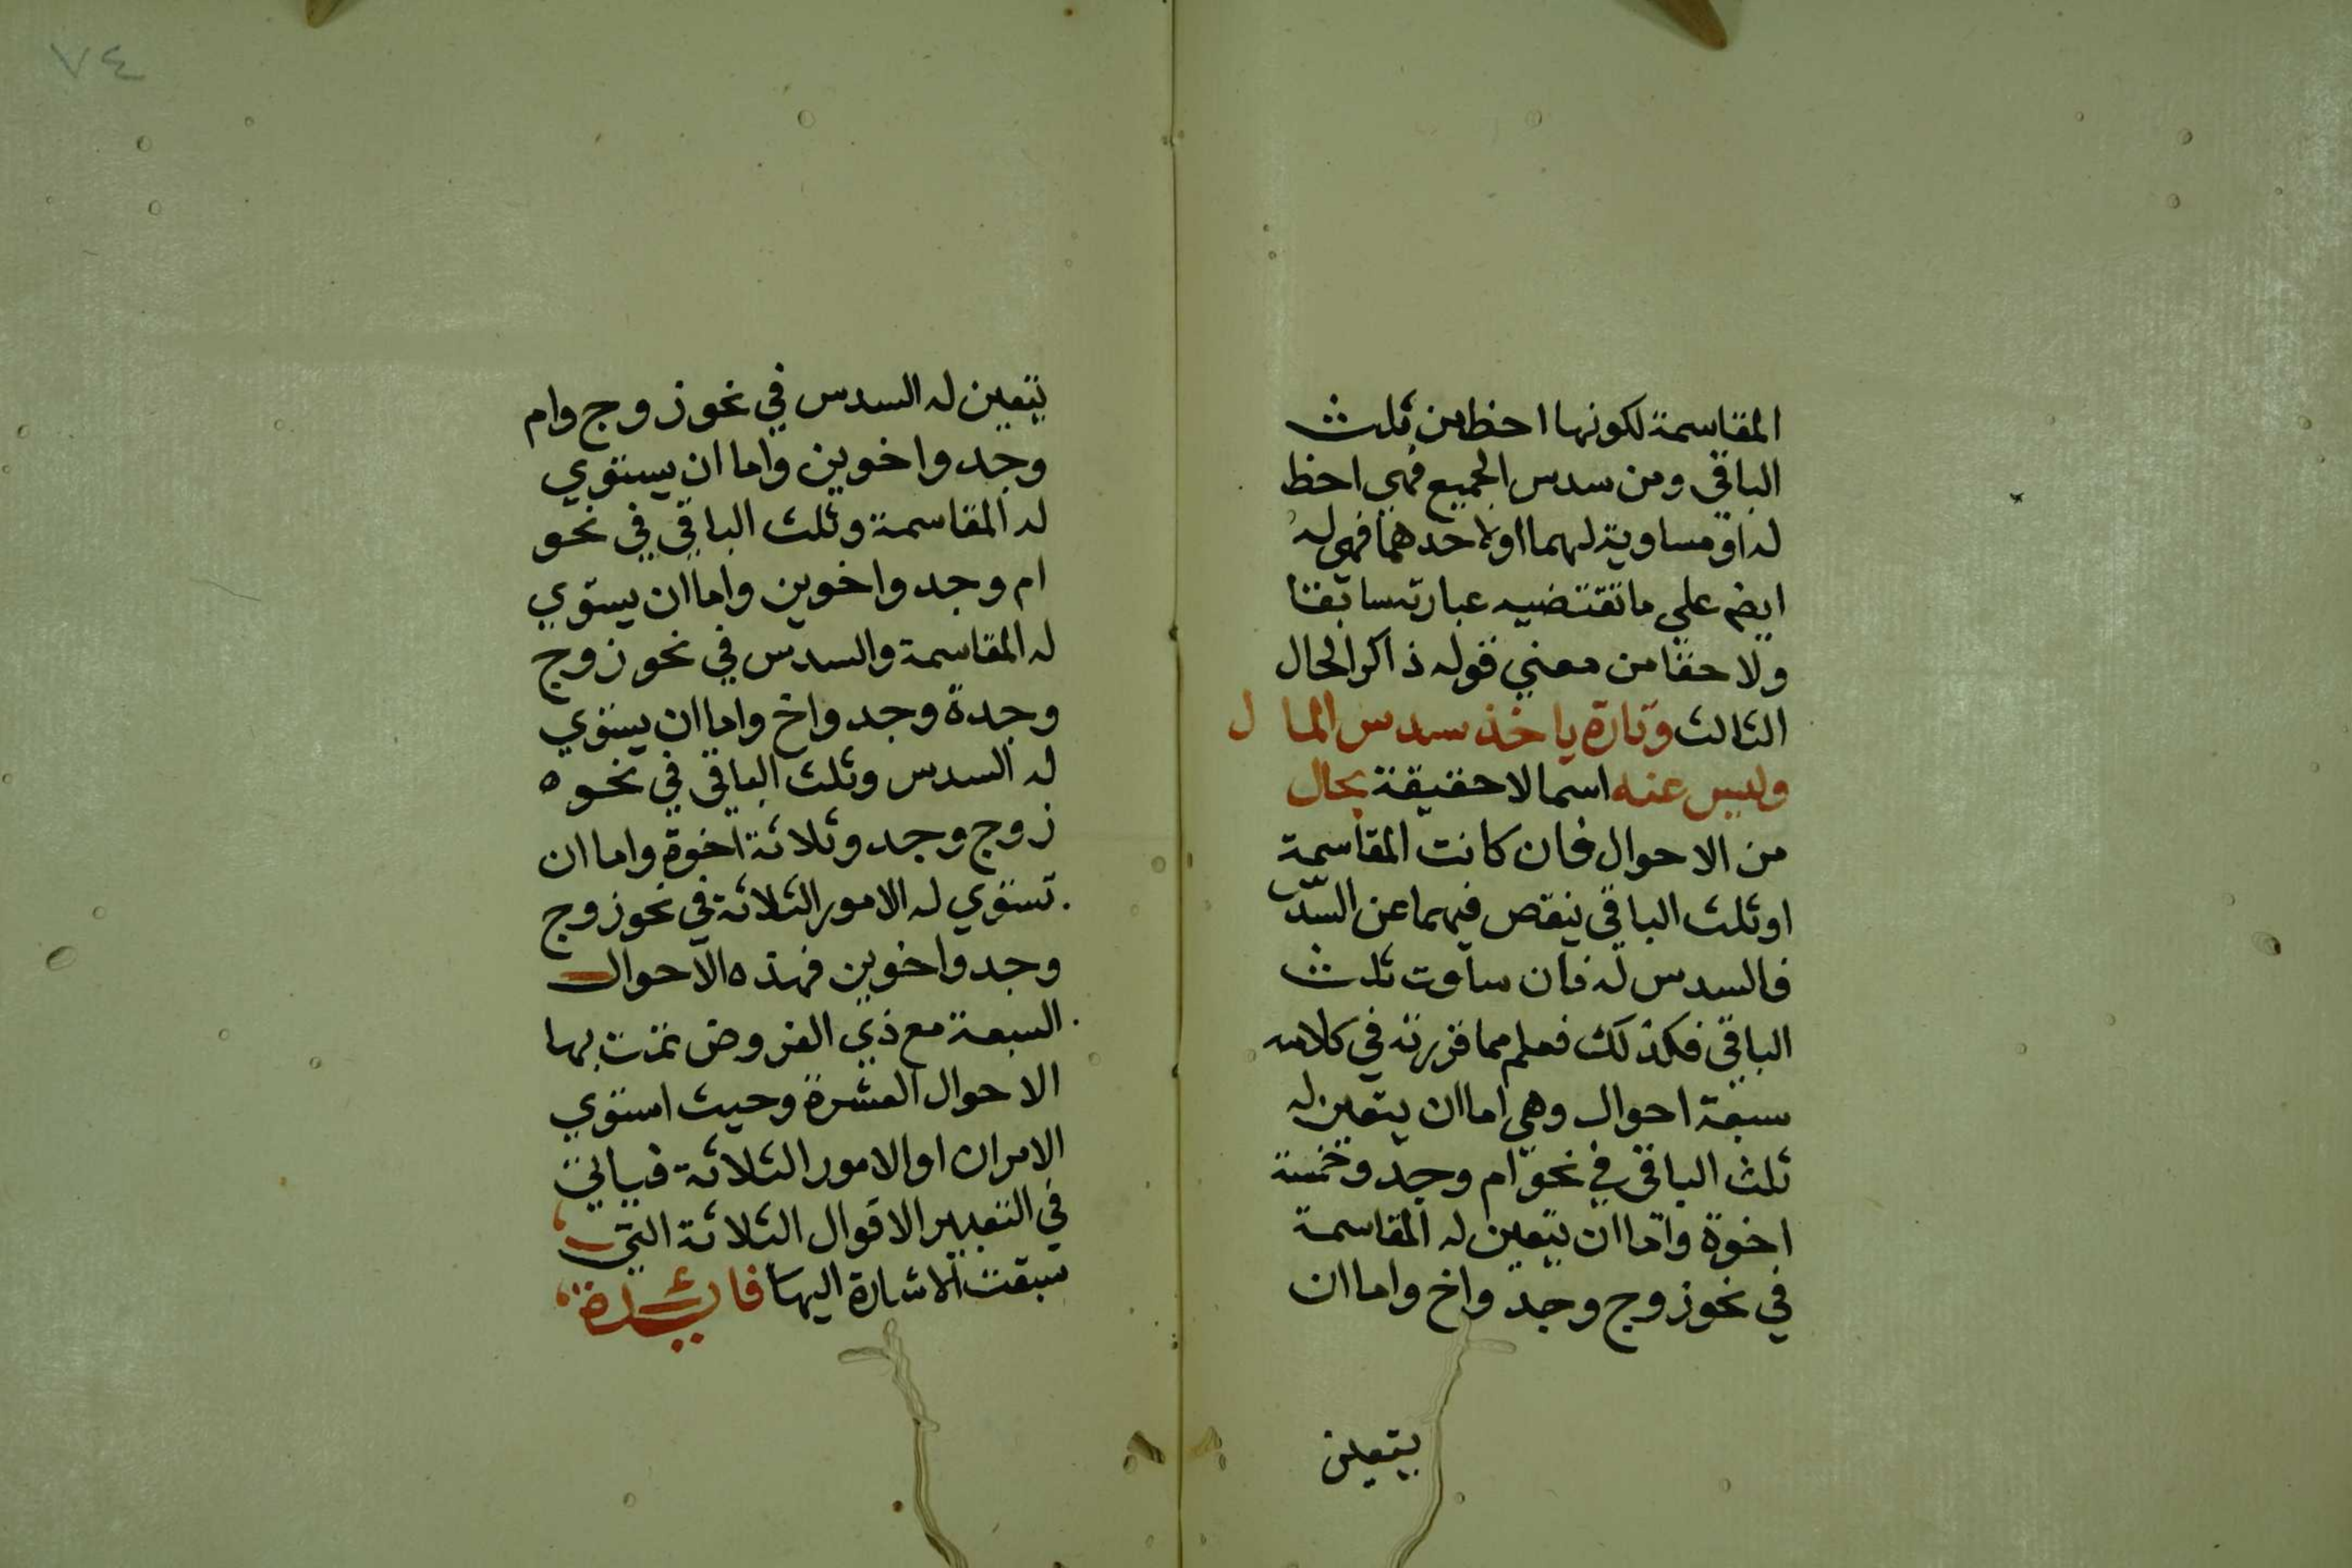 المقاسمة لكونها احظ من ثلث
الباقي ومن سدس الجميع فهي احظ
له او مساوية لهما او لاحدهما فهي له
ايضم علي ما تقتضيه عبارته سابقا
ولاحقا من معني قوله ذاكرا لحال
الثالث وتارة ياخذ سدس المال
وليس عنه اسما لا حقيقة بحال
من الاحوال فان كانت المقاسمة
او ثلث الباقي ينقص فيهما عن السدس
فالسدس له فان ساوت ثلث
الباقي فكذلك فعلم مما قررته في كلامه
سبعة احوال وهي اما ان يتعين له
ثلث الباقي في نحو ام وجد وخمسة
اخوة واما ان يتعين له المقاسمة
في نحو زوج وجد واخ واما ان
يتعين
٧٤
يتعين له السدس في نحو زوج وام
وجد واخوين واما ان يستوي
له المقاسمة وثلث الباقي في نحو
ام وجد واخوين واما ان يستوي
له المقاسمة والسدس في نحو زوج
وجدة وجد واخ واما ان يستوي
له السدس وثلث الباقي في نحو ه
زوج وجد وثلاثة اخوة واما ان
تستوي له الامور الثلاثة في نحو زوج
وجد واخوين فهذه الاحوال
السبعة مع ذي الفروض تمت بها
الاحوال العشرة وحيث استوي
الامران او الامور الثلاثة فياتي
في التعبير الاقوال الثلاثة التي
سبقت الاشارة اليها فايدة